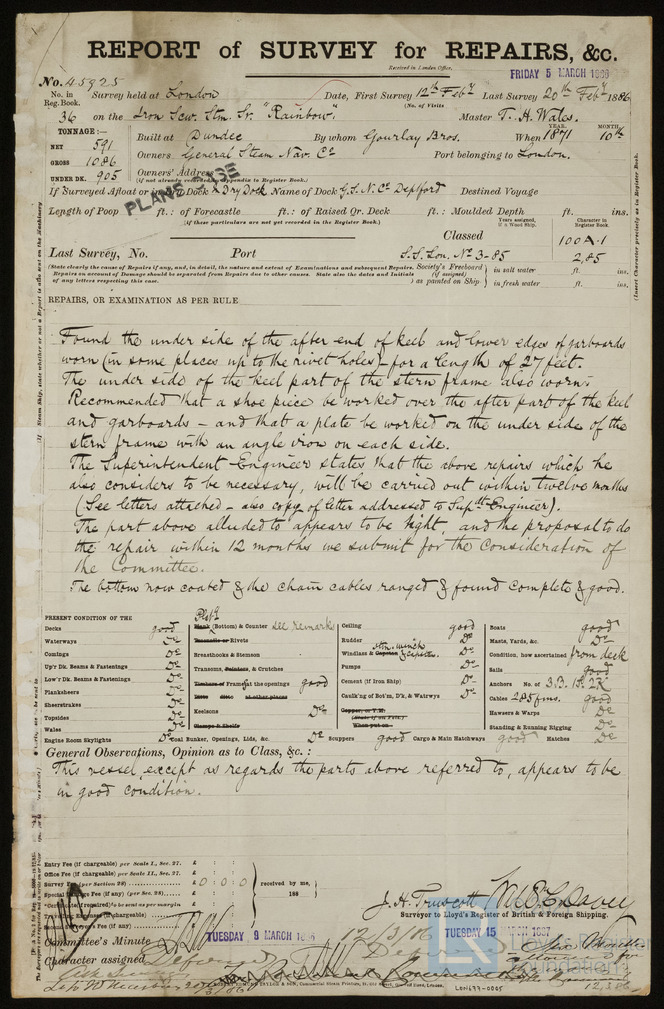 REPORT of SURVEY for REPAIRS, &c.
Received in London Office,
FRIDAY 5 MARCH 1886
No. 45925
No. in Reg. Book. Survey held at London Date, First Survey 12th Feby Last Survey 20th Feby 1886
(No. of Visits
36 on the Iron Scw. Stm. Sr. "Rainbow" Master T. H. Wales.
TONNAGE:— YEAR. MONTH.
NET 591 Built at Dundee By whom Gourlay Bros. When 1871 10th
GROSS 1086 Owners General Steam Nav. Co Port belonging to London.
UNDER DK. 905 Owners' Address
(if not already recorded in Appendix to Register Book.)
PLANS
If Surveyed Afloat or in Dry Dock Dry Dock Name of Dock G.S.N.Co Deptford Destined Voyage
Length of Poop ft.: of Forecastle ft.: of Raised Qr. Deck ft.: Moulded Depth ft. ins.
(if these particulars are not yet recorded in the Register Book.)
Years assigned, if a Wood Ship. Character in Register Book.
Classed 100A.1
Last Survey, No. Port S.S. Lon. No 3-85 2,85
(State clearly the cause of Repairs if any, and, in detail, the nature and extent of Examinations and subsequent Repairs.
Repairs on account of Damage should be separated from Repairs due to other causes. State also the dates and Initials
of any letters respecting this case.
Society's Freeboard (if assigned) as painted on Ship
in salt water ft. ins.
in fresh water ft. ins.
REPAIRS, OR EXAMINATION AS PER RULE
Found the under side of the after end of keel and lower edges of garboards
worn (in some places up to the rivet holes) - for a length of 27 feet.
The under side of the keel part of the stern frame also worn.
Recommended that a shoe piece be worked over the after part of the keel
and garboards – and that a plate be worked on the under side of the
stern frame with an angle iron on each side.
The Superintendent Engineer states that the above repairs which he
also considers to be necessary, will be carried out within twelve months
(See letters attached - also copy of letter addressed to Supdt Engineer).
The part above alluded to appears to be tight, and the proposal to do
the repair within 12 months we submit for the consideration of
the Committee.
The bottom now coated & the chain cables ranged & found complete & good.
PRESENT CONDITION OF THE
Decks good
Waterways Do
Comings Do
Up'r Dk. Beams & Fastenings Do
Low'r Dk. Beams & Fastenings Do
Planksheers Do
Sheerstrakes Do
Topsides Do
Wales Do
Engine Room Skylights Do
Platg
Plank (Bottom) & Counter see remarks
Treenails or Rivets
Breasthooks & Stemson
Transoms, Pointers, & Crutches
Timbers of Frames at the openings good
Ditto ditto at other places
Keelsons Do
Clamps & Shelfs
Coal Bunker, Openings, Lids, &c. Do
Ceiling good
Rudder Do
Stm. winch
Windlass & Capstan Do
Pumps Do
Cement (if Iron Ship) Do
Caulk'ng of Bot'm, D'k, & Watrwys Do
Copper, or Y.M.
(State if on Felt.)
When put on
Scuppers good Cargo & Main Hatchways good Hatches Do
Boats good
Masts, Yards, &c. Do
Condition, how ascertained from deck
Sails good
Anchors No. of 3,B. 1S. 2K
Cables 285 fms. good
Hawsers & Warps Do
Standing & Running Rigging Do
General Observations, Opinion as to Class, &c. :
This vessel, except as regards the parts above referred to, appears to be
in good condition.
Entry Fee (if chargeable) per Scale I., Sec. 27. £ : :
Office Fee (if chargeable) per Scale II., Sec. 27. £ : :
Survey Fee (per Section 28) £ 0 : 0 : 0
received by me,
188
J. H. Truscott
Surveyor to Lloyd's Register of British & Foreign Shipping.
Committee's Minute
TUESDAY 9 MARCH 1886
12/3/86
TUESDAY 15 MARCH 1887
Character assigned Deferred
Lloyd's Register Foundation
LON677-0005